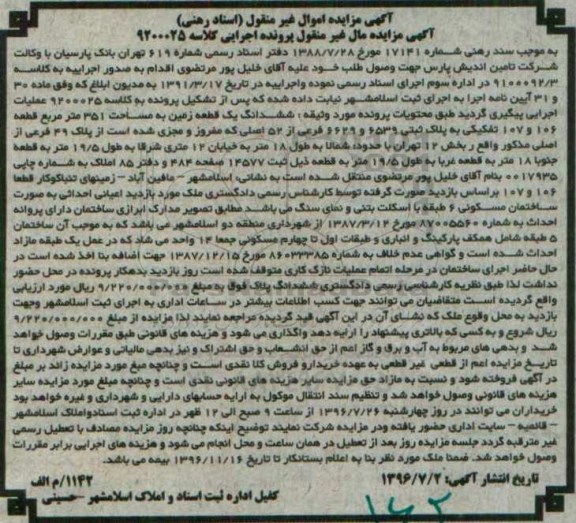 آگهی مزایده اموال غیر منقول (اسناد رهنی)
آگهی مزایده مال غیر منقول پرونده اجرایی کلاسه ۹۲۰۰۰۲۵
به موجب سند رهنی شماره ۱۷۱۴۱ مورخ ۱۳۸۸/۷/۲۸ دفتر اسناد رسمی شماره ۶۱۹ تهران بانک پارسیان با وکالت
شرکت تامین اندیش پارس جهت وصول طلب خود علیه آقای خلیل پور مرتضوی اقدام به صدور اجراییه به کلاسه
۹۱۰۰۰۹۲/۳ در اداره سوم اجرای اسناد رسمی نموده واجراییه در تاریخ ۱۳۹۱/۳/۱۷ به مدیون ابلاغ که وفق ماده ۳۰
و ۳۱ آیین نامه اجرا به اجرای ثبت اسلامشهر نیابت داده شده که پس از تشکیل پرونده به کلاسه ۹۲۰۰۰۲۵ عملیات
اجرایی پیگیری گردید طبق محتویات پرونده مورد وثیقه: ششدانگ یک قطعه زمین به مساحت ۳۵۱ متر مربع قطعه
۱۰۶ و ۱۰۷ تفکیکی به پلاک ثبتی ۶۵۳۹ و ۶۶۲۹ فرعی از ۵۲ اصلی که مفروز و مجزی شده است از پلاک ۴۹ فرعی از
اصلی مذکور واقع در بخش ۱۲ تهران با حدود: شمالا به طول ۱۸ متر به خیابان ۱۲ متری شرقا به طول ۱۹/۵ متر به قطعه
جنوبا ۱۸ متر به قطعه غربا به طول ۱۹/۵ متر به قطعه ذیل ثبت ۱۴۵۷۷ صفحه ۴۸۴ و دفتر ۸۵ املاک به شماره چاپی
۰۰۱۷۹۳۵ بنام آقای خلیل پور مرتضوی منتقل شده است به نشانی: اسلامشهر – مافین آباد – زمینهای تنباکوکار قطعا
۱۰۶ و ۱۰۷ براساس بازدید صورت گرفته توسط کارشناس رسمی دادگستری ملک مورد بازدید اعیانی احداثی به صورت
ساختمان مسکونی ۶ طبقه با اسکلت بتنی و نمای سنگ می باشد مطابق تصویر مدارک ابرازی ساختمان دارای پروانه
احداث به شماره ۸۷۰۰۵۵۶۰ مورخ ۱۳۸۷/۳/۱۲ از شهرداری منطقه دو اسلامشهر می باشد که به موجب آن ساختمان
۵ طبقه شامل همکف پارکینگ و انباری و طبقات اول تا چهارم مسکونی جمعا ۱۴ واحد می شاد که در عمل یک طبقه مازاد
احداث شده است و گواهی عدم خلاف به شماره ۸۶۰۳۳۳۸۵ مورخ ۱۳۸۷/۱۲/۱۵ جهت اضافه بنا اخذ شده است در
حال حاضر اجرای ساختمان در مرحله اتمام عملیات نازک کاری متوقف شده است روز بازدید بدهکار پرونده در محل حضور
نداشت لذا طبق نظریه کارشناسی رسمی دادگستری ششدانگ پلاک فوق به مبلغ ۹/۲۲۰/۰۰۰/۰۰۰ ریال مورد ارزیابی
واقع گردیده است متقاضیان می توانند جهت کسب اطلاعات بیشتر در ساعات اداری به اجرای ثبت اسلامشهر وجهت
بازدید به محل وقوع ملک که نشای آن در این آگهی قید گردیده مراجعه نمایند لذا مزایده از مبلغ ۹/۲۲۰/۰۰۰/۰۰۰
ریال شروع و به کسی که بالاتری پیشنهاد را ارایه دهد واگذار می شود و هزینه های قانونی طبق مقررات وصول خواهد
شد و بدهی های مربوط به آب و برق و گاز اعم از حق انشعاب و حق اشتراک و نیز بدهی مالیاتی و عوارض شهرداری تا
تاریخ مزایده اعم از قطعی غیر قطعی به عهده خریدارو فروش کلا نقدی است و چنانچه مبلغ مورد مزایده زائد بر مبلغ
در آگهی فروخته شود و نسبت به مازاد حق مزایده سایر هزینه های قانونی نقدی است و چنانچه مبلغ مورد مزایده سایر
هزینه های قانونی وصول خواهد شد و تنظیم سند انتقال موکول به ارایه حسابهای دارایی و شهرداری و غیره خواهد بود
خریداران می توانند در روز چهارشنبه ۱۳۹۶/۷/۲۶ از ساعت ۹ صبح الی ۱۲ ظهر در اداره ثبت اسنادواملاک اسلامشهر
– قائمیه – سایت اداری حضور یافته ودر مزایده شرکت نمایند توضیح اینکه چنانچه روز مزایده مصادف با تعطیل رسمی
غیر مترقبه گردد جلسه مزایده روز بعد از تعطیل در همان ساعت و محل انجام می شود و هزینه های اجرایی برابر مقررات
وصول خواهد شد. ضمنا ملک مورد نظر بنا به اعلام بستانکار تا تاریخ ۱۳۹۶/۱۱/۱۶ بیمه می باشد.
تاریخ انتشار آگهی: ۱۳۹۶/۷/۲
۱۱۴۲/م الف
کفیل اداره ثبت اسناد و املاک اسلامشهر – حسینی